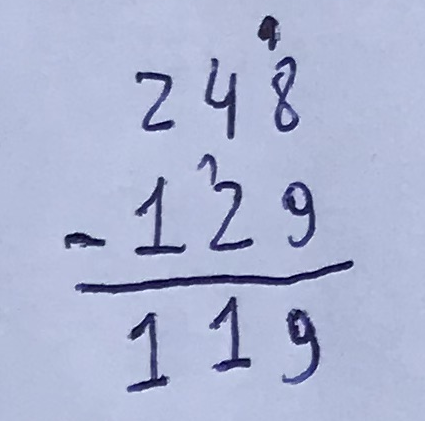 248
- 129
119